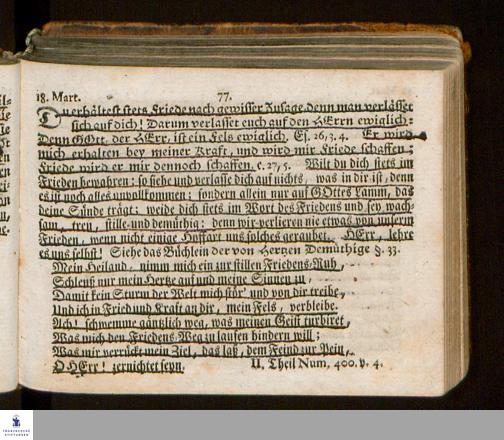 18. Mart. 77.
Du erhältest stets Friede nach gewisser Zusage, denn man verlässet
sich auf dich! Darum verlasset euch auf den HErrn ewiglich:
Denn GOtt, der HErr, ist ein Fels ewiglich. Es. 26, 3. 4. Er wird
mich erhalten bey meiner Kraft, und wird mir Friede schaffen;
Friede wird er mir dennoch schaffen. c. 27, 5. Wilt du dich stets im
Frieden bewahren; so siehe und verlasse dich auf nichts, was in dir ist, denn
es ist noch alles unvollkommen; sondern allein nur auf GOttes Lamm, das
deine Sünde trägt: weide dich stets im Wort des Friedens und sey wach-
sam, treu, stille und demüthig: denn wir verlieren nie etwas von unserm
Frieden, wenn nicht einige Hoffart uns solches geraubet. HErr, lehre
es uns selbst! Siehe das Büchlein der von Hertzen Demüthige §. 33.
Mein Heiland, nimm mich ein zur stillen Friedens-Ruh,
Schleuß nur mein Hertze auf und meine Sinnen zu,
Damit kein Sturm der Welt mich stör' und von dir treibe,
Und ich in Fried und Kraft an dir, mein Fels, verbleibe.
Ach! schwemme gäntzlich weg, was meinen Geist turbiret,
Was mich den Friedens-Weg zu laufen hindern will;
Was mir verrückt mein Ziel, das laß, dem Feind zur Pein,
O HErr! zernichtet seyn. II. Theil Num. 400. v. 4.
FRANCKESCHE
STIFTUNGEN